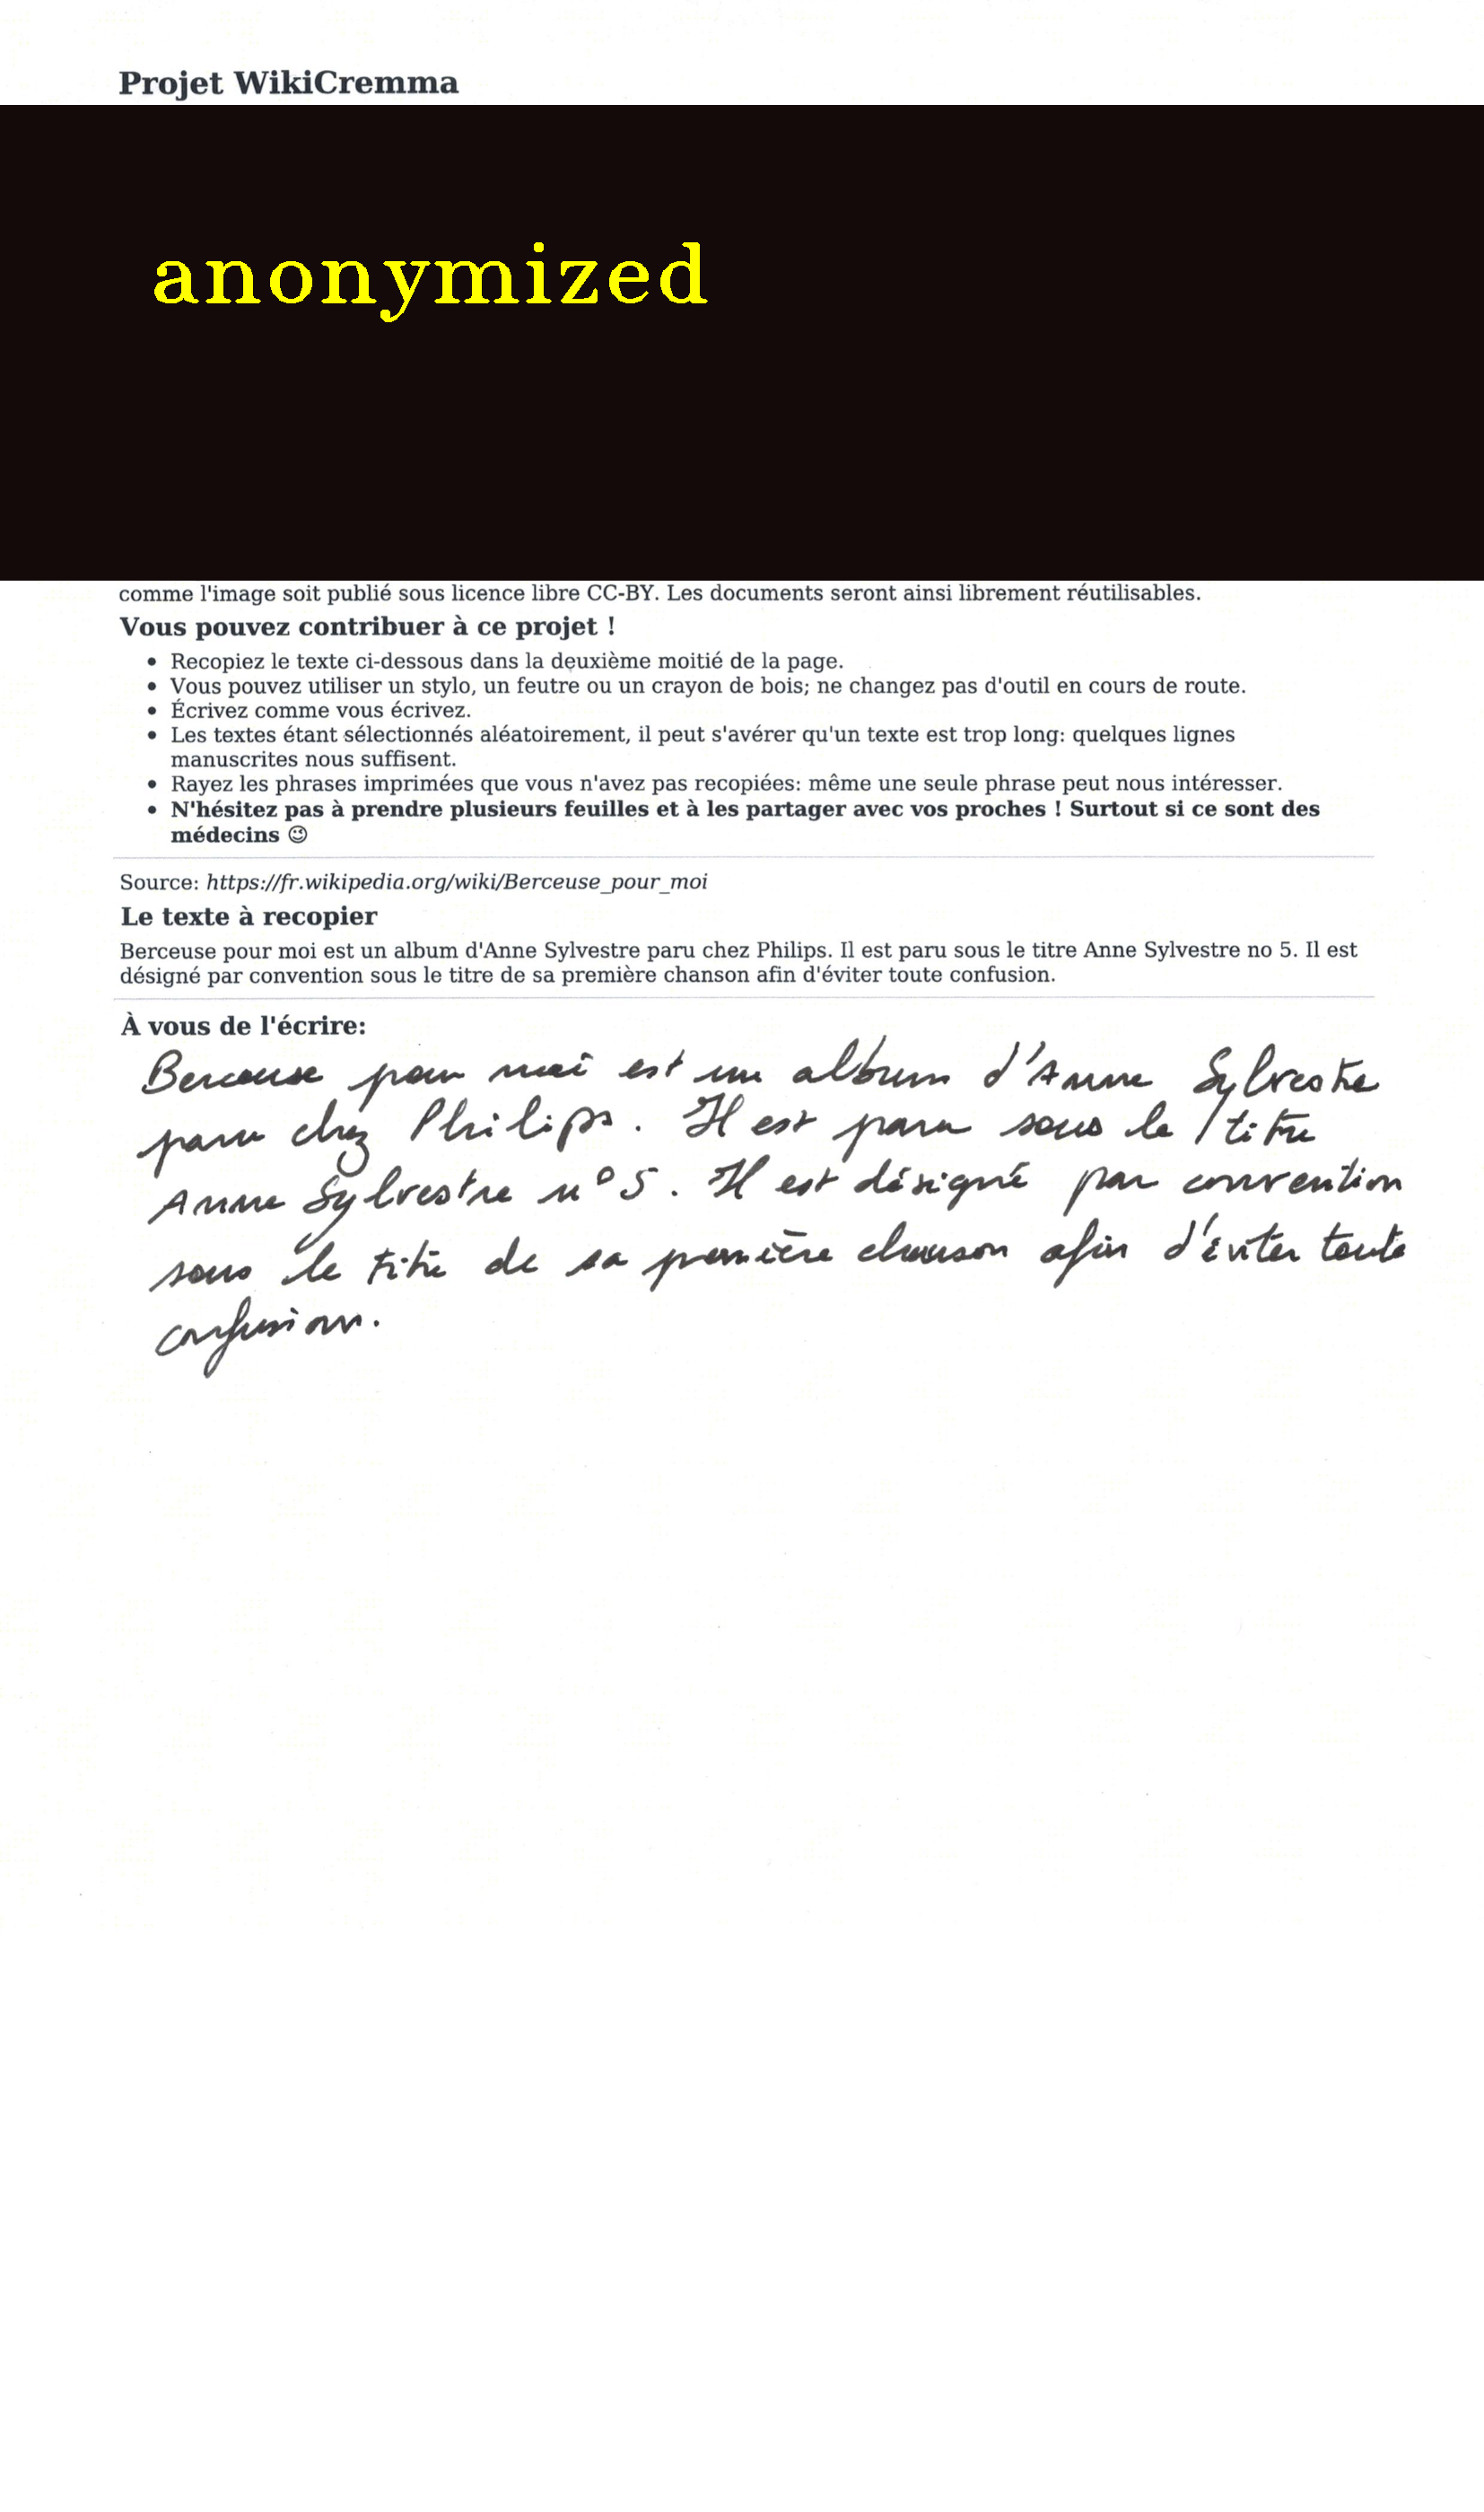 Projet WikiCremma
anonymized
comme l'image soit publié sous licence libre CC-BY. Les documents seront ainsi librement réutilisables.
Vous pouvez contribuer à ce projet !
• Recopiez le texte ci-dessous dans la deuxième moitié de la page.
• Vous pouvez utiliser un stylo, un feutre ou un crayon de bois; ne changez pas d'outil en cours de route.
• Écrivez comme vous écrivez.
• Les textes étant sélectionnés aléatoirement, il peut s'avérer qu'un texte est trop long: quelques lignes
manuscrites nous suffisent.
• Rayez les phrases imprimées que vous n'avez pas recopiées: même une seule phrase peut nous intéresser.
• N'hésitez pas à prendre plusieurs feuilles et à les partager avec vos proches ! Surtout si ce sont des
médecins 😉
Source: https://fr.wikipedia.org/wiki/Berceuse_pour_moi
Le texte à recopier
Berceuse pour moi est un album d'Anne Sylvestre paru chez Philips. Il est paru sous le titre Anne Sylvestre no 5. Il est
désigné par convention sous le titre de sa première chanson afin d'éviter toute confusion.
À vous de l'écrire:
Berceuse pour moi est un album d'Anne Sylvestre
paru chez Philips. Il est paru sous le titre
Anne Sylvestre n° 5. Il est désigné par convention
sous le titre de sa première chanson afin d'éviter toute
confusion.